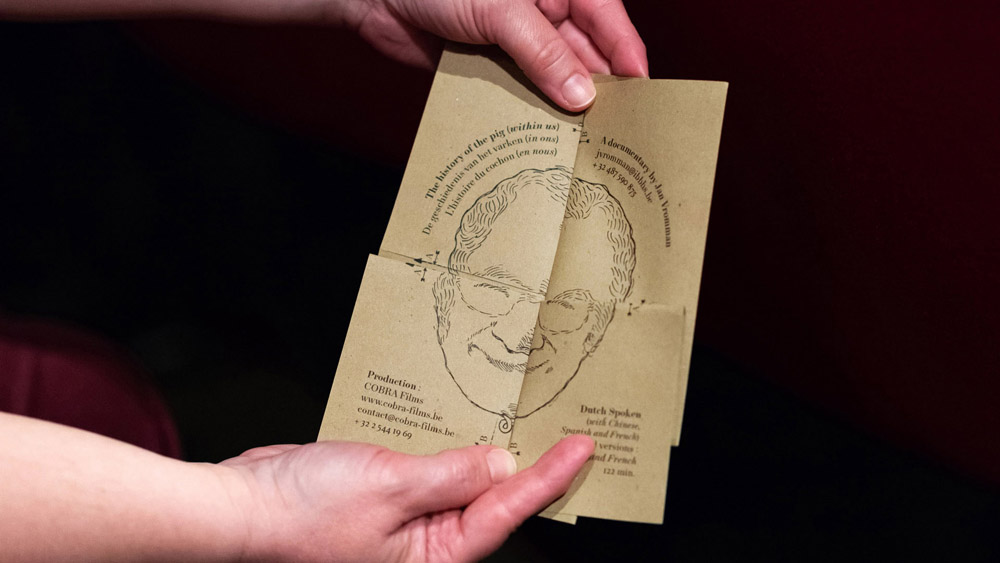 The history of the pig (within us)
De geschiedenis van het varken (in ons)
L'histoire du cochon (en nous)
A documentary by Jan Vromman
jvromman@ibbbs.be
+32 487 590 875
A
A
B
Production :
COBRA Films
www.cobra-films.be
contact@cobra-films.be
+ 32 2 544 19 69
B
B
Dutch Spoken
(with Chinese,
Spanish and French)
versions :
and French
122 min.